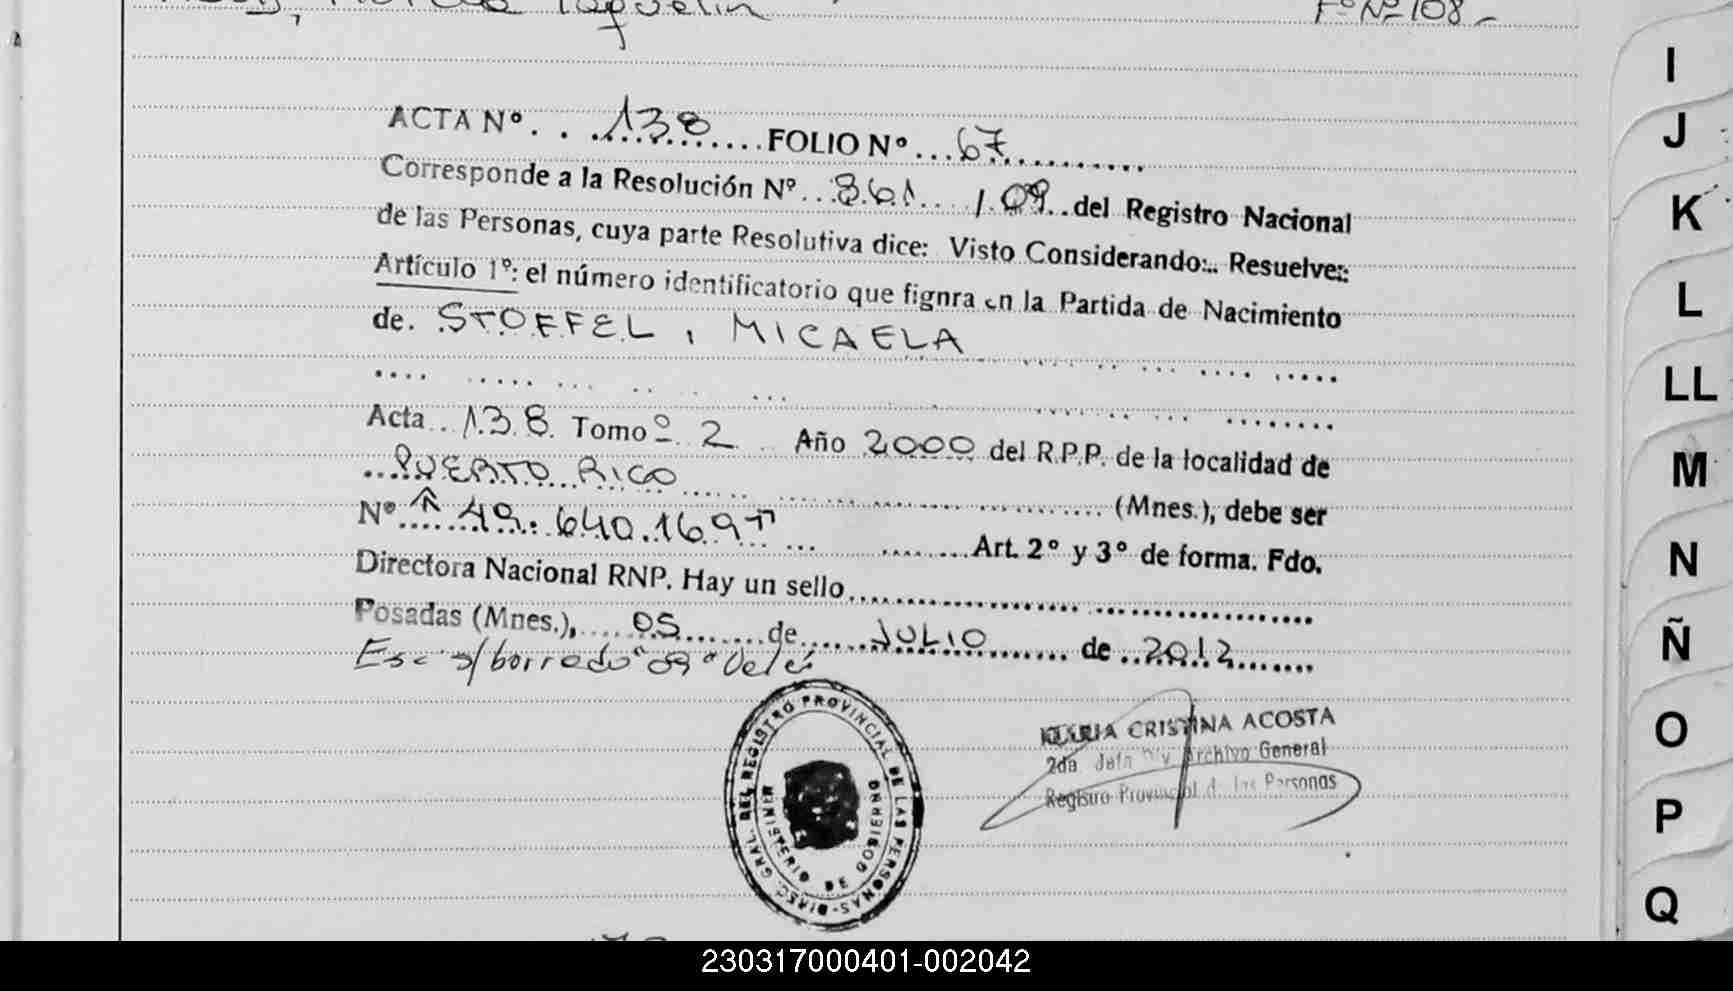 F° Nº 108-
ACTA N°. . . 138 ....... FOLIO N° ... 67 ..........
Corresponde a la Resolución Nº ... 861 .. / 09 .. del Registro Nacional
de las Personas, cuya parte Resolutiva dice: Visto Considerando:.. Resuelve::
Artículo 1º: el número identificatorio que fignra en la Partida de Nacimiento
de. STOFFEL, MICAELA
Acta .. 138. Tomo º 2 Año 2000 del R.P.P. de la localidad de
... PUERTO RICO ............ (Mnes.), debe ser
Nº ... " 49.640.169" ... ........ Art. 2° y 3° de forma. Fdo.
Directora Nacional RNP. Hay un sello ....................
Posadas (Mnes.), .... 05 ........ de ...... JULIO ........ de .. 2012 .......
Esc s/borrado "09" Vale
DIREC. GRAL. DEL REGISTRO PROVINCIAL DE LAS PERSONAS-
MINISTERIO DE GOBIERNO
MARIA CRISTINA ACOSTA
2da. Jefa Div. Archivo General
Registro Provincial de las Personas
I
J
K
L
LL
M
N
Ñ
O
P
Q
230317000401-002042